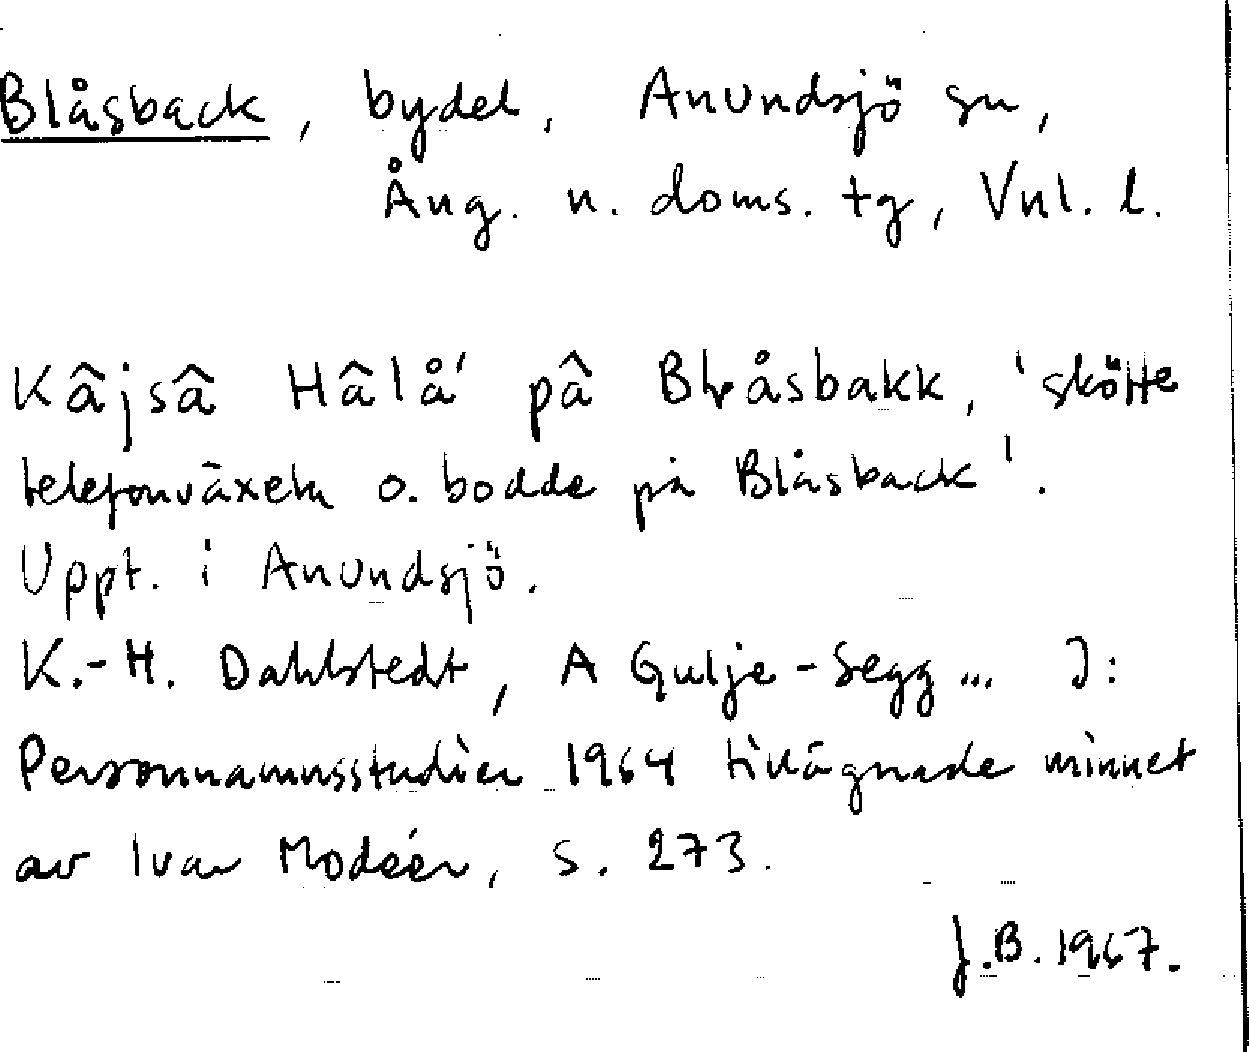 Blåsback, bydel, Anundsjö sn,
Ång. n. doms. tg, Vnl. l.
Kâjsâ Hâlå' på̂ Blråsbakk, 'skötte
telefonväxeln o. bodde på Blåsback'.
Uppt. i Anundsjö.
K.-H. Dahlstedt, A Gulje-Segg ... I:
Personnamnsstudier 1964 tillägnade minnet
av Ivar Modéer, s. 273.
J.B. 1967.